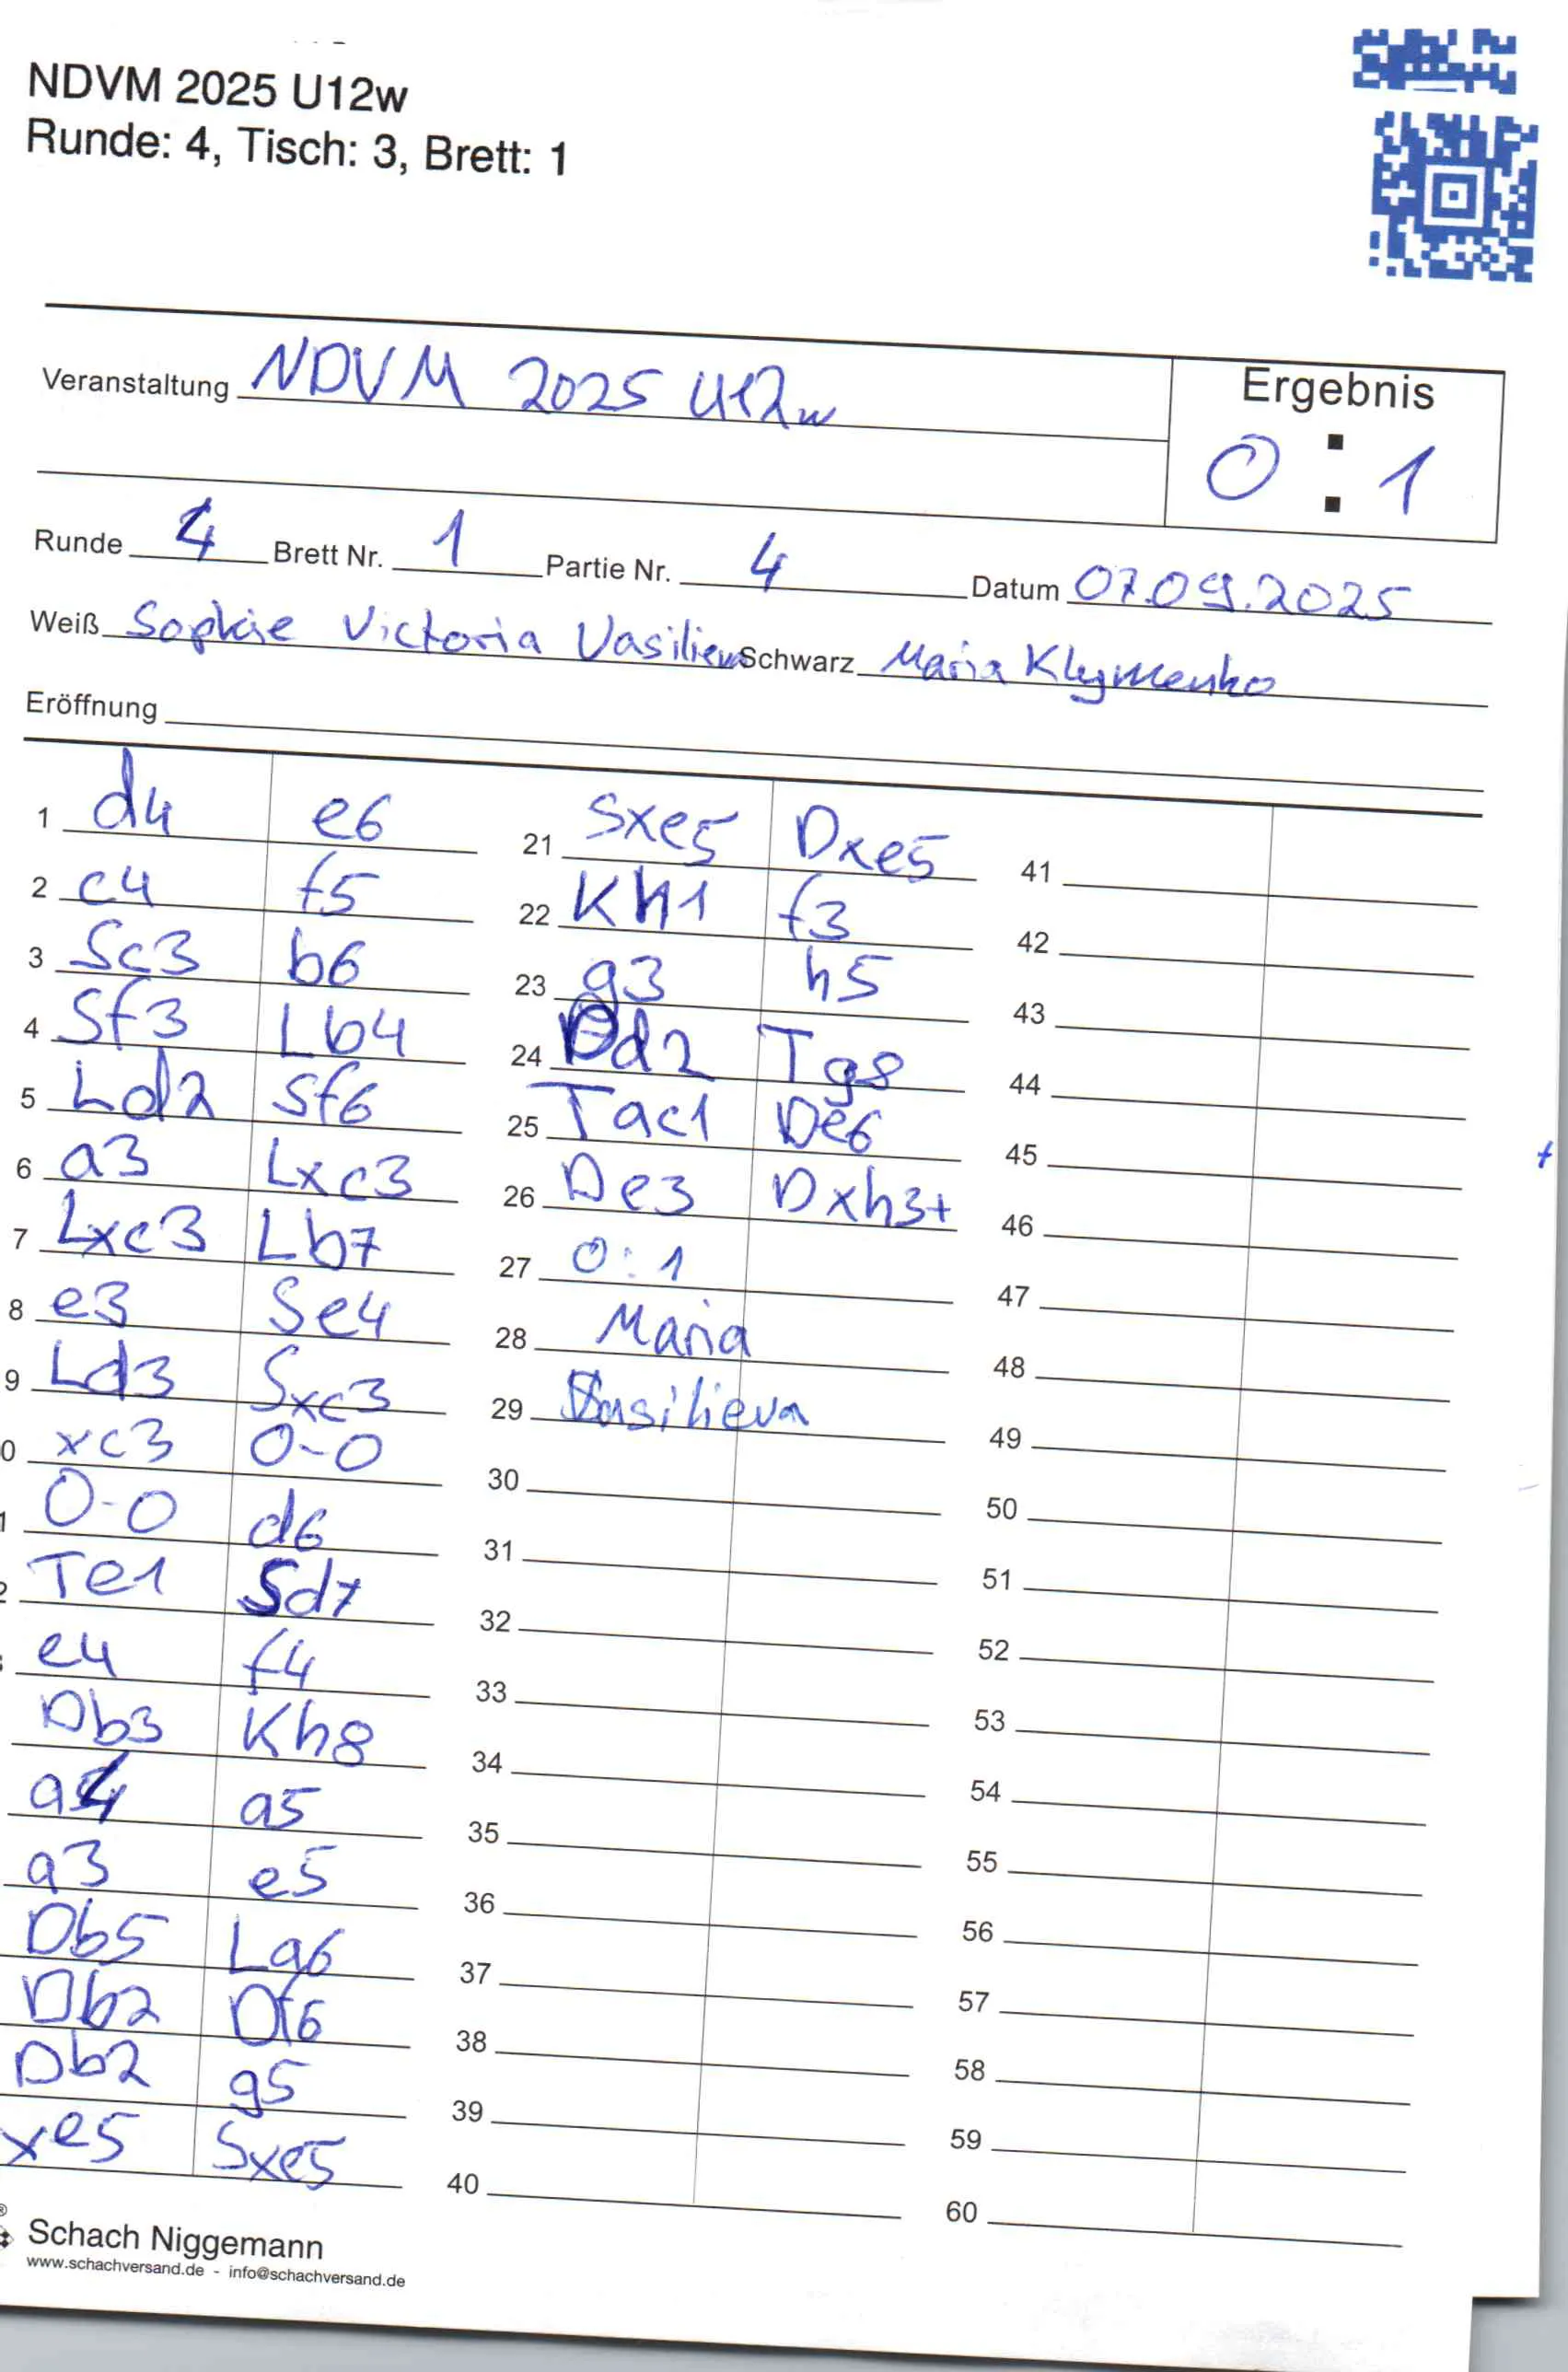 NDVM 2025 U12w
Runde: 4, Tisch: 3, Brett: 1
Veranstaltung NDVM 2025 U12w
Ergebnis
0 : 1
Runde 4 Brett Nr. 1 Partie Nr. 4 Datum 07.09.2025
Weiß Sophie Victoria Vasilieva Schwarz Maria Klymenko
Eröffnung
1 d4 e6 21 Sxe5 Dxe5 41
2 c4 f5 22 Kh1 f3 42
3 Sc3 b6 23 g3 h5 43
4 Sf3 Lb4 24 Dd2 Tg8 44
5 Ld2 Sf6 25 Tac1 De6 45
6 a3 Lxc3 26 De3 Dxh3+ 46
7 Lxc3 Lb7 27 0:1 47
8 e3 Se4 28 Maria 48
9 Ld3 Sxc3 29 Vasilieva 49
0 xc3 0-0 30 50
1 0-0 d6 31 51
2 Te1 Sd7 32 52
e4 f4 33 53
Db3 Kh8 34 54
a4 a5 35 55
a3 e5 36 56
Db5 La6 37 57
Db2 Df6 38 58
Db2 g5 39 59
xe5 Sxe5 40 60
® Schach Niggemann
www.schachversand.de - info@schachversand.de